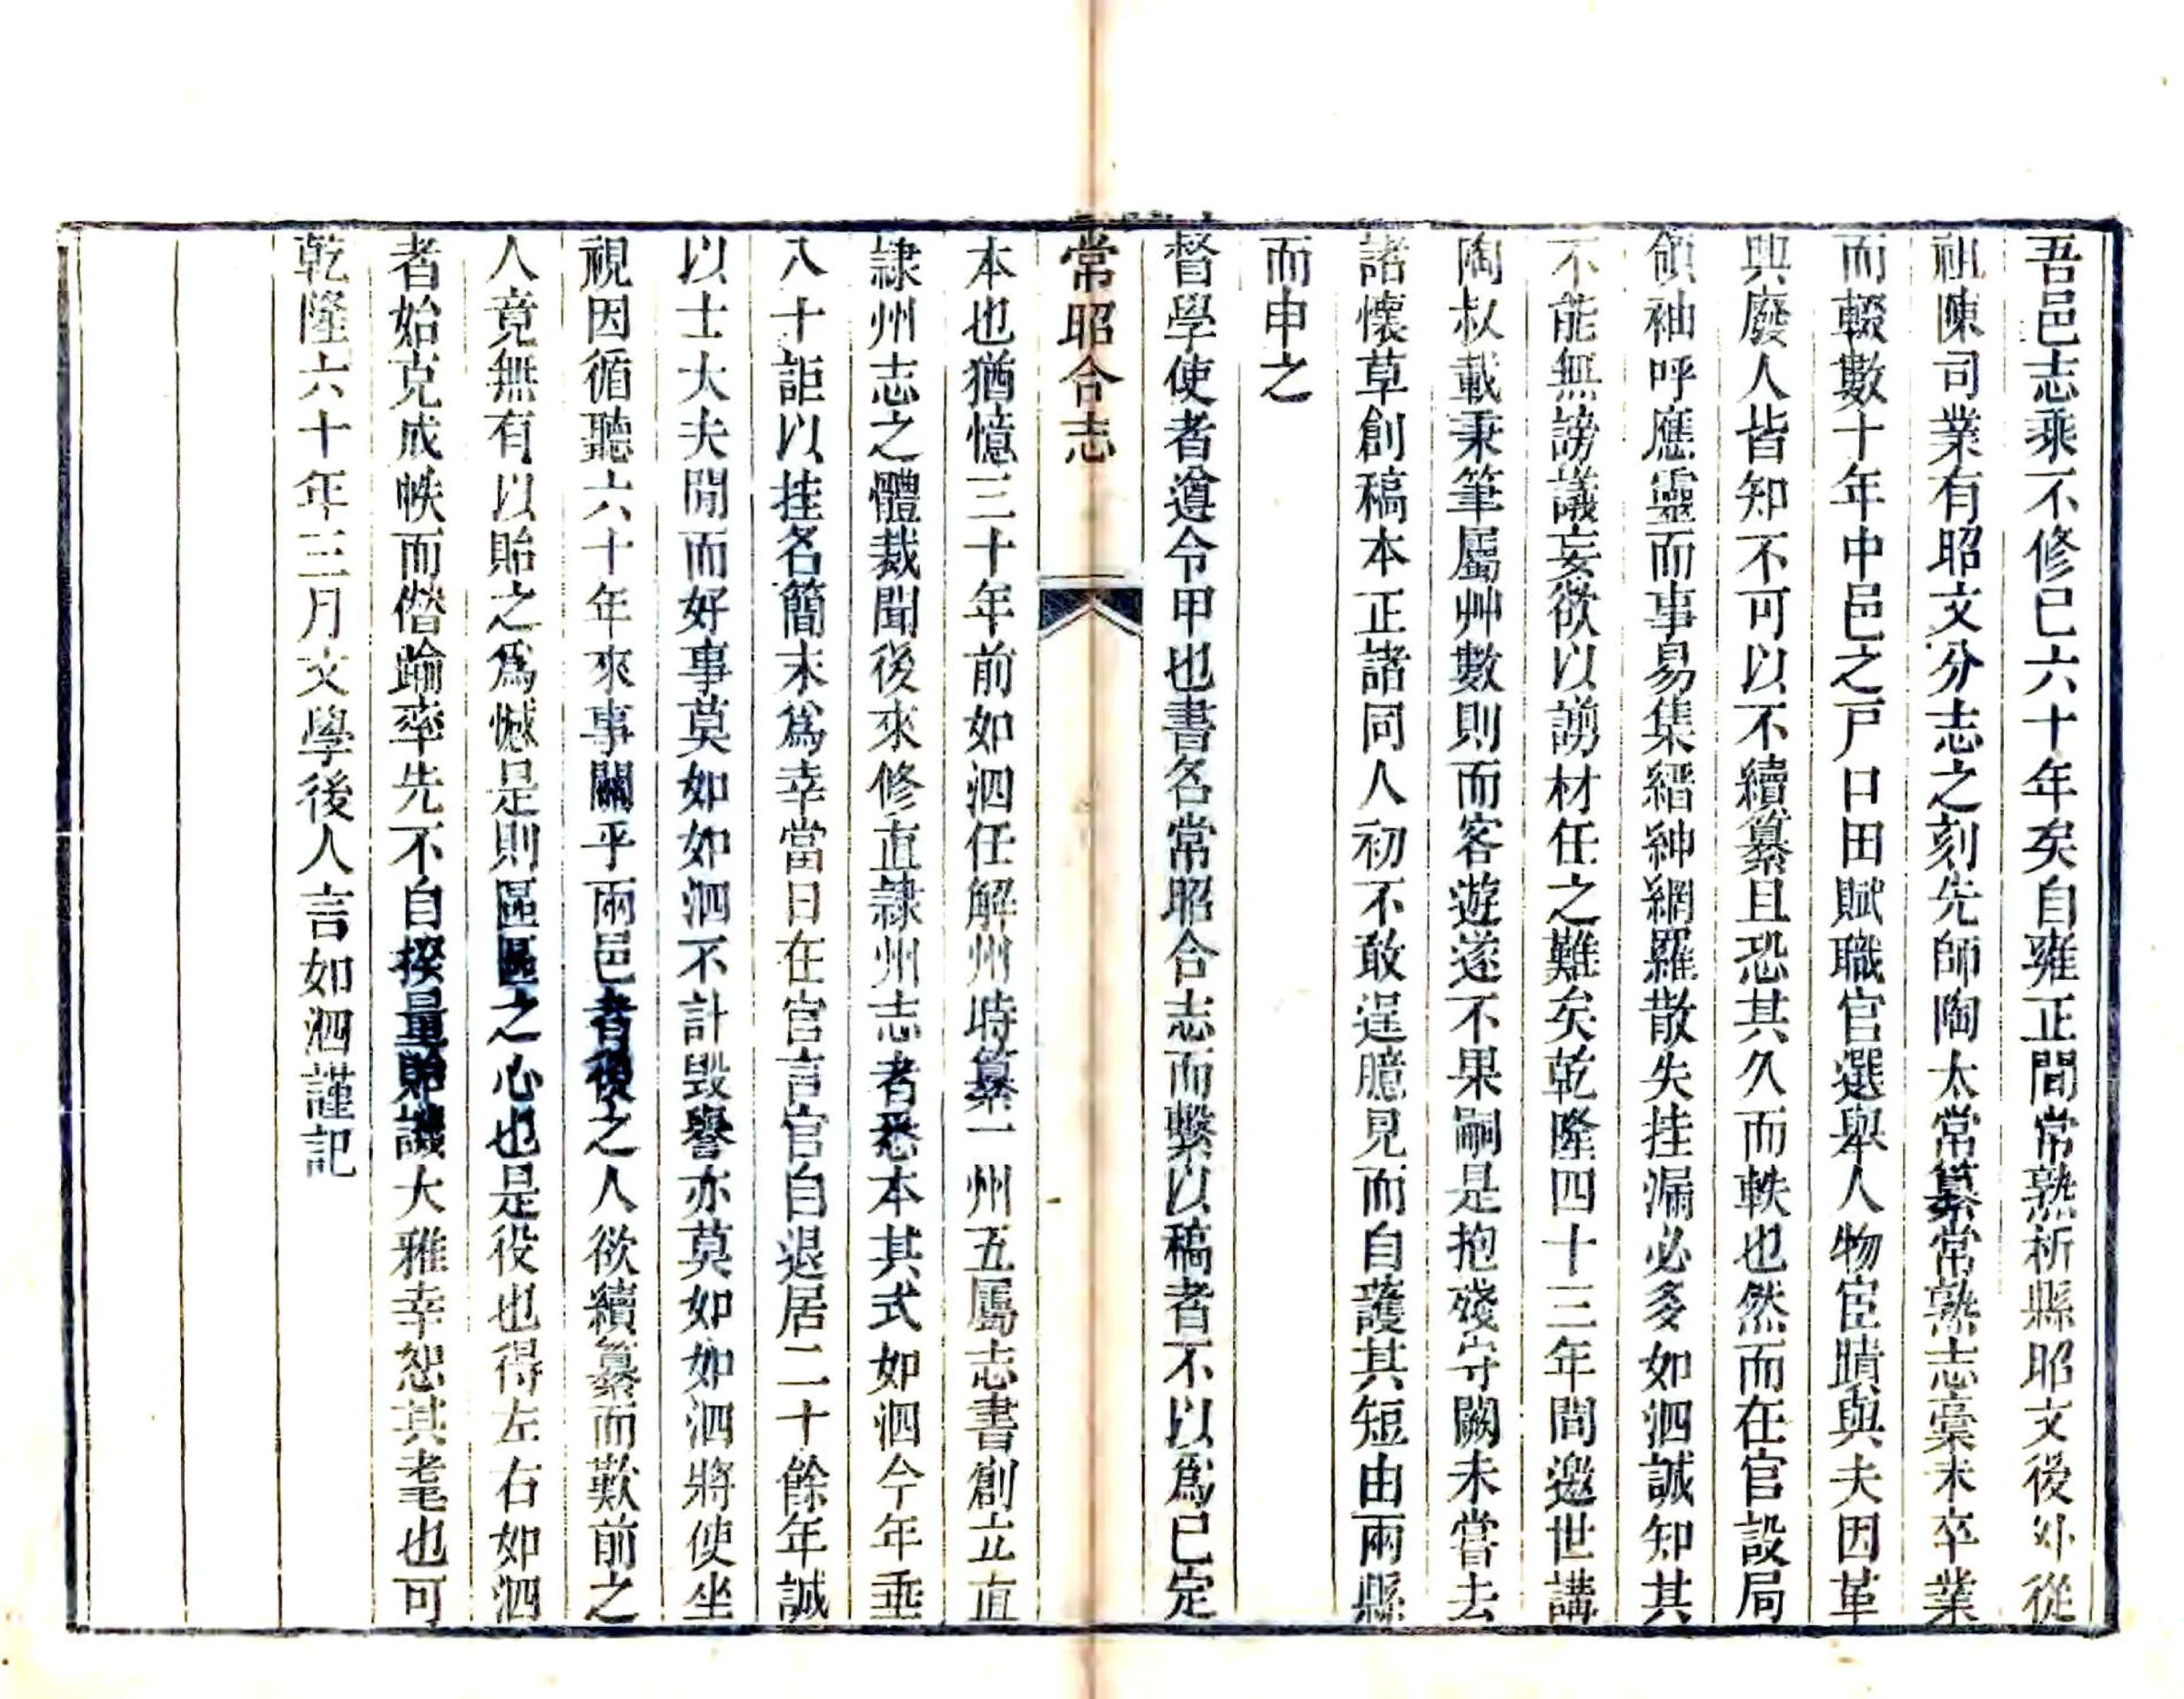 吾邑志乘不修已六十年矣自雍正間常熟析縣昭文後外從
祖陳司業有昭文分志之刻先師陶太常纂常熟志稾未卒業
而輟數十年中邑之戸口田賦職官選舉人物宦蹟與夫因革
興廢人皆知不可以不續纂且恐其久而軼也然而在官設局
領袖呼應靈而事易集縉紳網羅散失挂漏必多如泗誠知其
不能無謗議妄欲以謭材任之難矣乾隆四十三年間邀世講
陶叔載秉筆屬艸數則而客遊遂不果嗣是抱殘守闕未嘗去
諸懷草創稿本正諸同人初不敢逞臆見而自護其短由兩縣
而申之
督學使者遵令甲也書名常昭合志而繫以稿者不以爲已定
常昭合志
本也猶憶三十年前如泗任解州時纂一州五屬志書創立直
隷州志之體裁聞後來修直隷州志者悉本其式如泗今年垂
八十詎以挂名簡末爲幸當日在官言官自退居二十餘年誠
以士大夫閒而好事莫如如泗不計毀譽亦莫如如泗將使坐
視因循聽六十年來事關乎兩邑者後之人欲續纂而歎前之
人竟無有以貽之爲憾是則區區之心也是役也得左右如泗
者始克成帙而僭踰率先不自揆量貽譏大雅幸恕其耄也可
乾隆六十年三月文學後人言如泗謹記